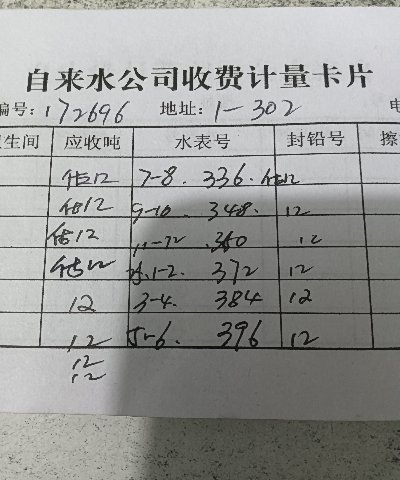 自来水公司收费计量卡片
编号: 172696 地址: 1-302 电
生间 应收吨 水表号 封铅号 擦
估12 7-8. 336. 估12
估12 9-10. 348. 12
估12 11-12 .360 12
估12 1-2. 372 12
12 3-4. 384 12
12 5-6. 396 12
12
12